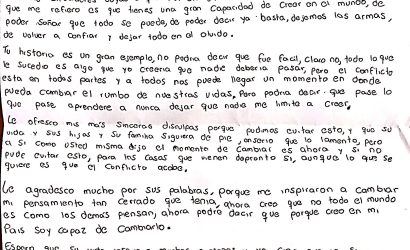 que me refiero es que tienes una gran Capacidad de Creer en el mundo, de
poder Soñar que todo se puede, de poder decir ya basta, dejemos las armas,
de volver a confiar y dejar todo en al olvido.
Tu historia es un gran ejemplo, no podria decir que fue facil, claro no, todo lo que
le sucedio es algo que yo creeria que nadie deberia pasar, pero el conflicto
esta en todas partes y a todos nos puede llegar un momento en donde
pueda cambiar el rumbo de nuestras vidas, Pero podria decir que pase lo
que pase aprendere a nunca dejar que nadie me limite a creer.
Le ofresco mis mas sinceras disculpas porque pudimos evitar esto, y que su
vida y sus hijos y su familia siguiera de pie, enserio que lo lamento, pero
a si como usted misma dijo el momento de Cambiar es ahora y si no
pude evitar esto, para los casas que vienen depronto si, aunque lo que se
quiere es que el Conflicto acabe.
Le agradesco mucho por sus palabras, porque me inspiraron a cambiar
mi pensamiento tan cerrado que tenia, ahora creo que no todo el mundo
es como los demas pensan, ahora podre decir que porque creo en mi
Pais soy capaz de Cambiarlo.